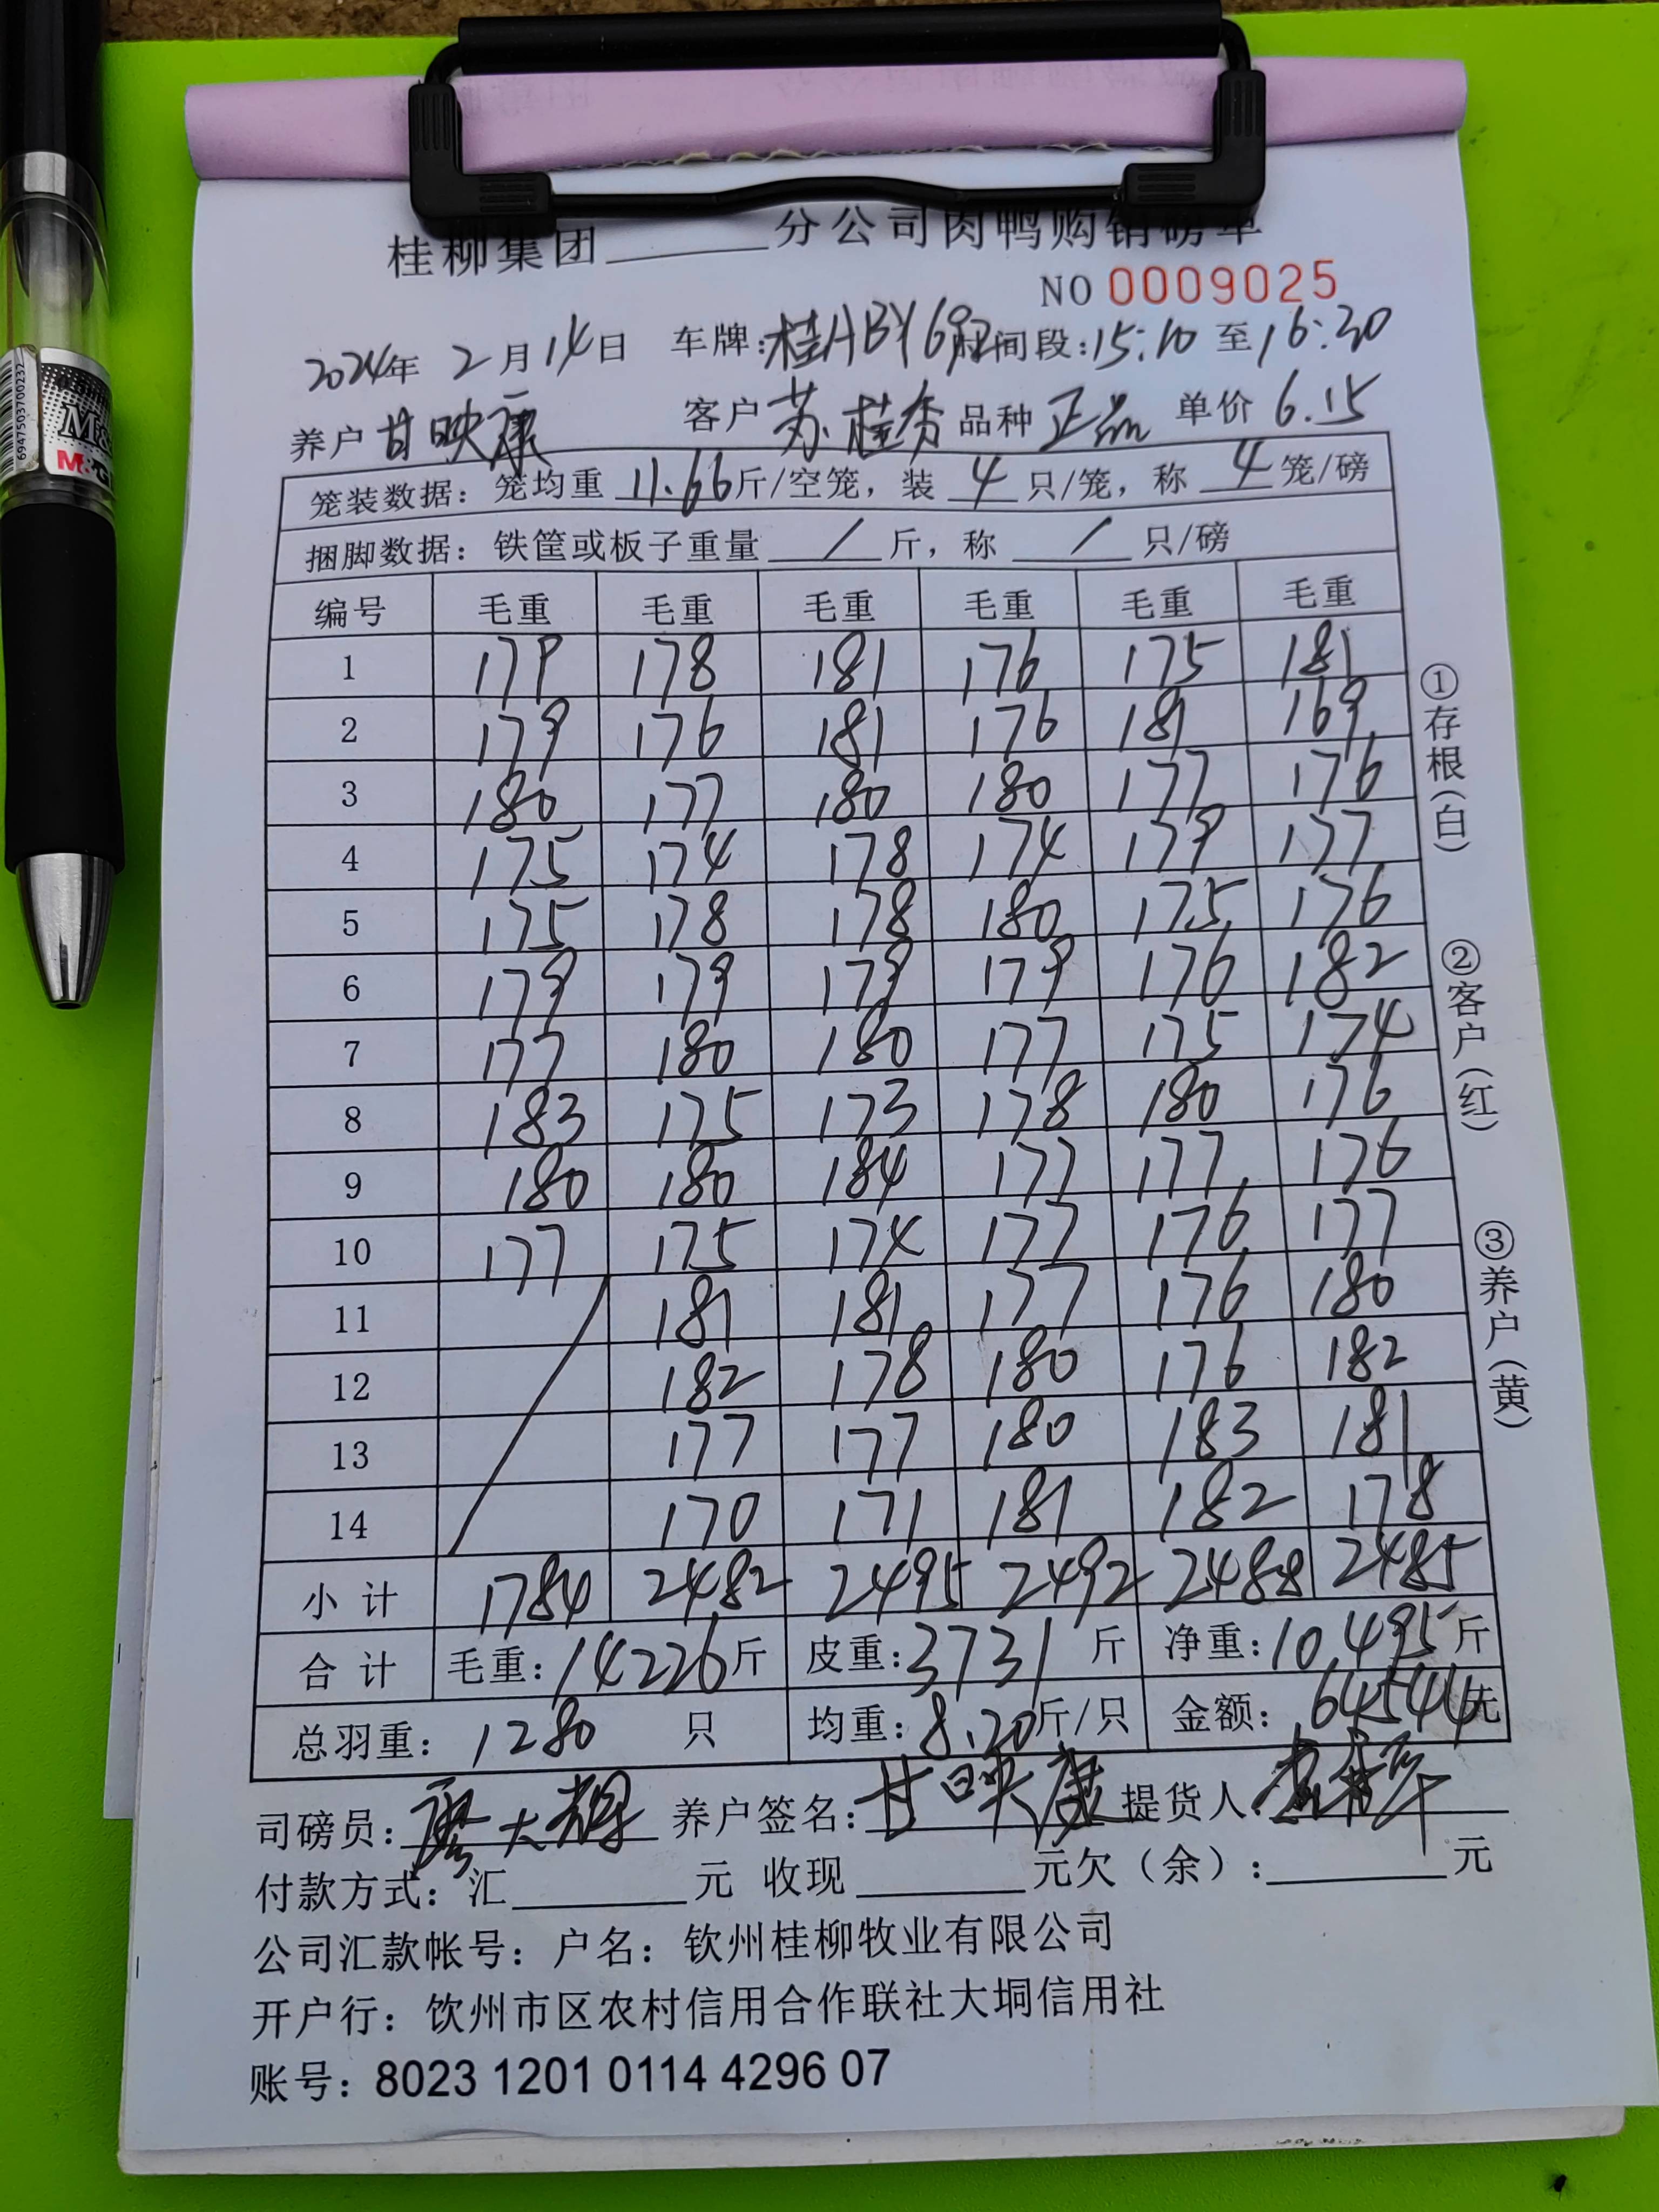 桂柳集团______分公司肉鸭购销磅单
NO 0009025
2024年 2月14日 车牌:桂HBY6 时间段:15:10 至 16:20
养户 甘映康 客户 苏桂秀 品种 正品 单价 6.15
笼装数据: 笼均重 11.66斤/空笼, 装 4 只/笼, 称 4 笼/磅
捆脚数据: 铁筐或板子重量 / 斤, 称 / 只/磅
编号 毛重 毛重 毛重 毛重 毛重 毛重
1 179 178 181 176 175 181
2 179 176 181 176 181 169
3 180 177 180 180 177 176
4 175 174 178 174 179 177
5 175 178 178 180 175 176
6 179 179 179 179 176 182
7 177 180 180 177 175 174
8 183 175 173 178 180 176
9 180 180 184 177 177 176
10 177 175 174 177 176 177
11 181 181 177 176 180
12 182 178 180 176 182
13 177 177 180 183 181
14 170 171 181 182 178
小计 1784 2482 2495 2492 2488 2485
合计 毛重:14226斤 皮重:3731斤 净重:10,495斤
总羽重: 1280 只 均重:8.20斤/只 金额: 64544元
司磅员:廖大辉 养户签名:甘映康 提货人:
付款方式: 汇______元 收现______元欠(余):______元
公司汇款帐号: 户名: 钦州桂柳牧业有限公司
开户行: 钦州市区农村信用合作联社大垌信用社
账号: 8023 1201 0114 4296 07
①存根(白)
②客户(红)
③养户(黄)
M&G
6947503702032